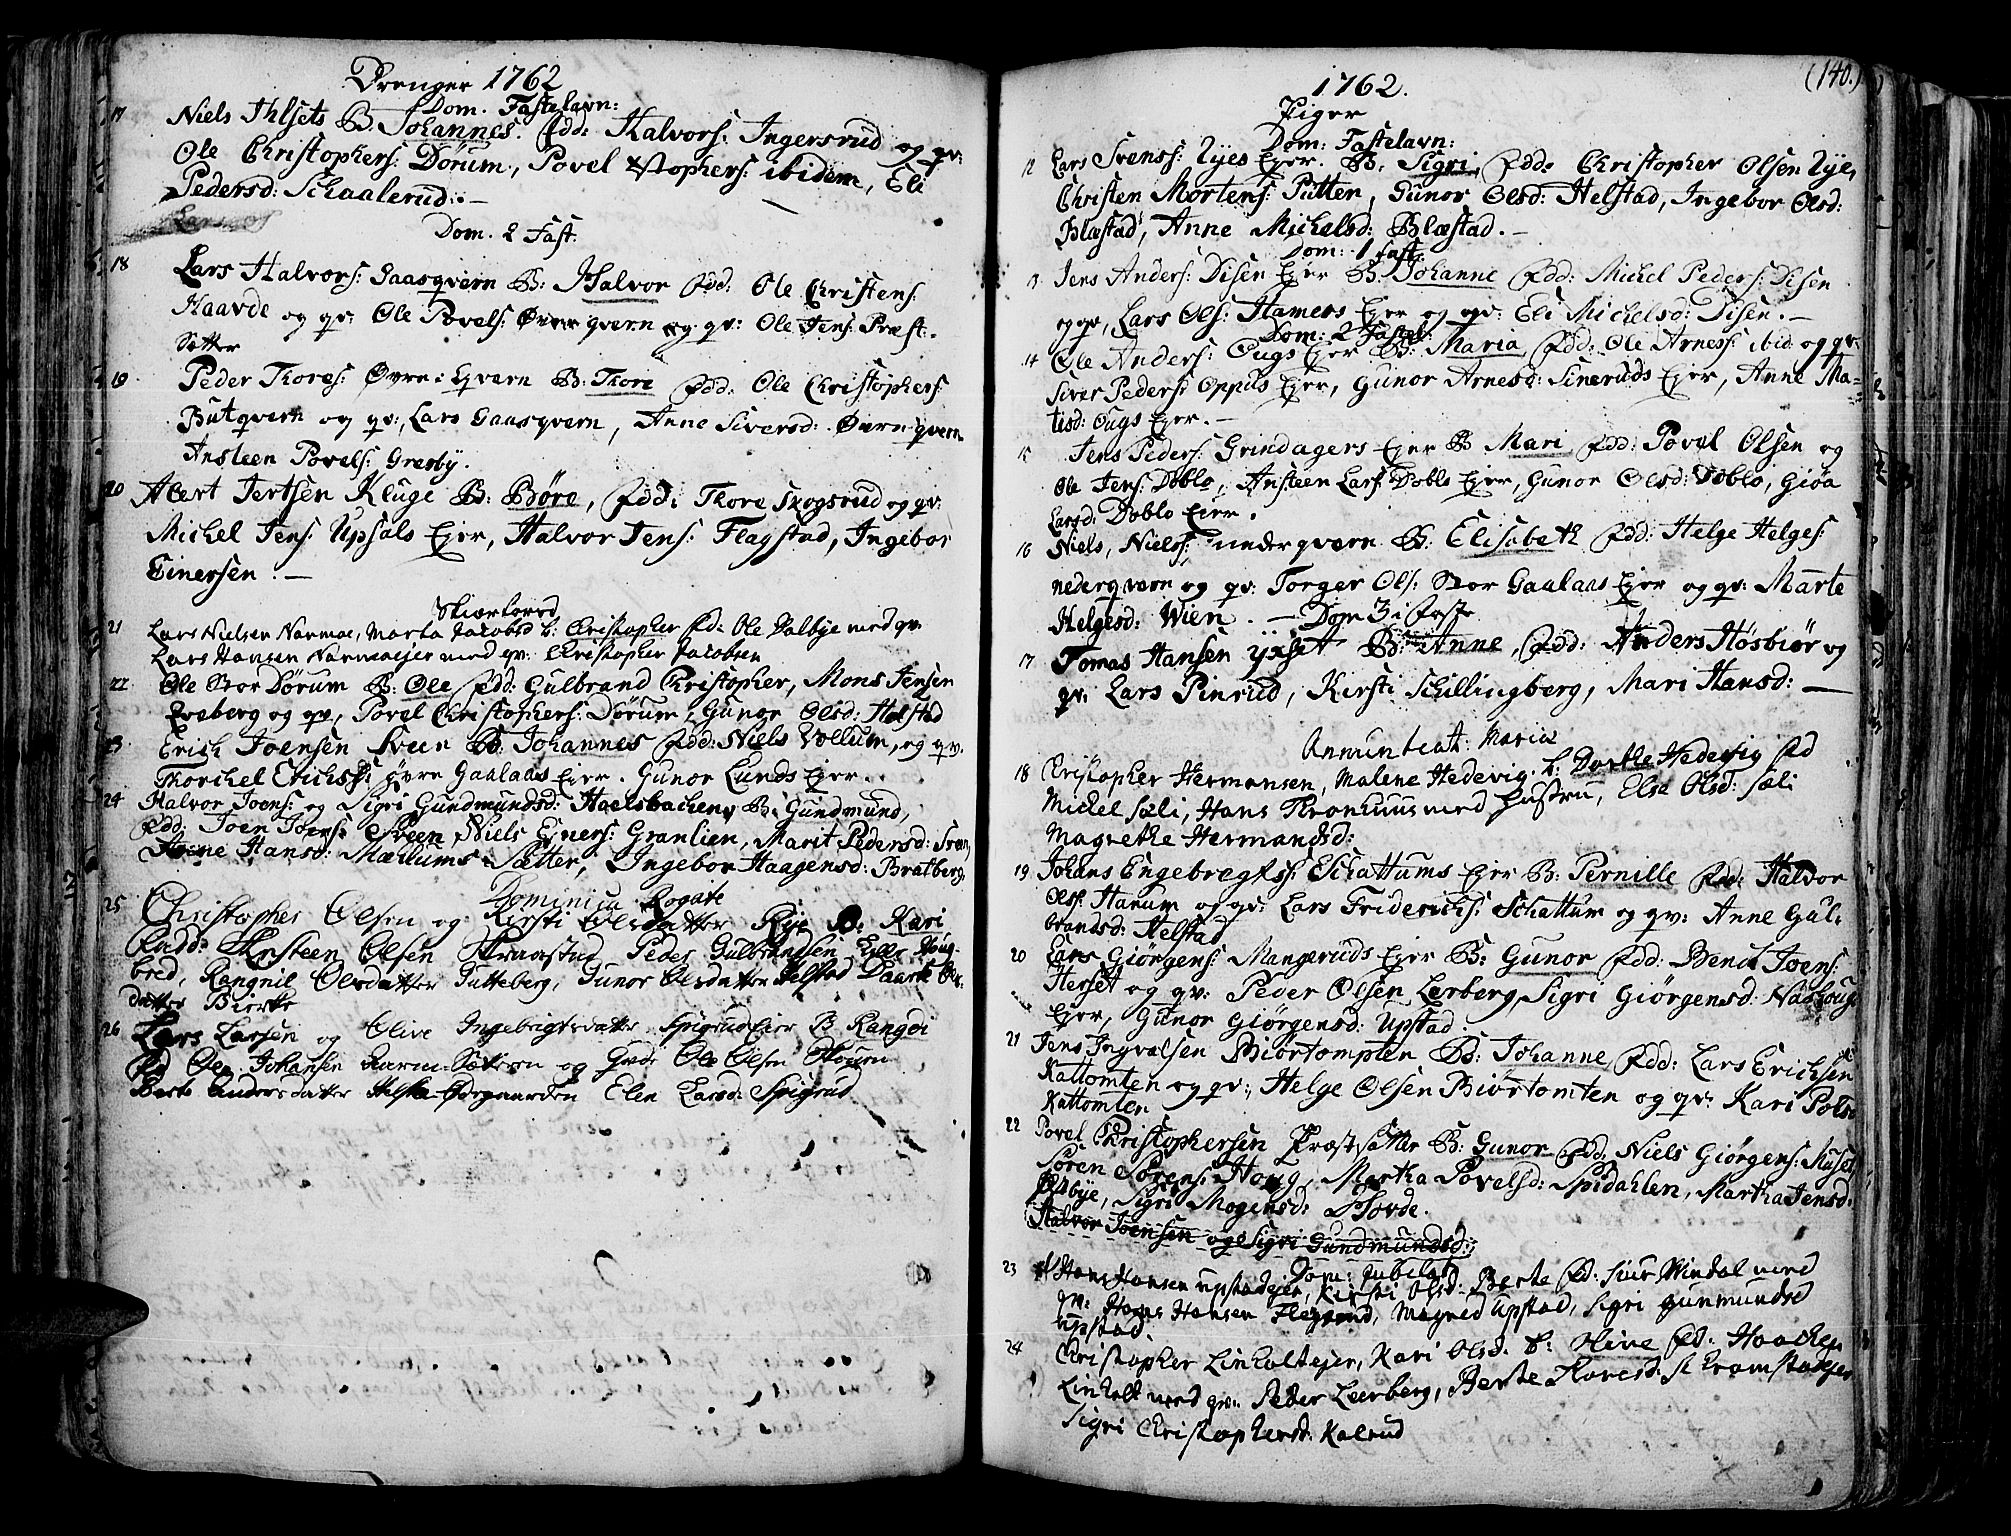 Drenger 1762
Dom. Fastelavn:
17 Niels Ihlsets B. Johannes. Fdd: Halvors: Ingersrud og qv:
Ole Christophers: Dørum, Povel Xstophers: ibidem, Eli
Pedersd: Schaalerud. —
Dom. 2 Fast:
18 Lars Halvors: Gaasqvern B: Halvor Fdd: Ole Christens:
Haavde og qv: Ole Povels: Øvre qvern og qv: Ole Jens: Præst-
Sætter
19 Peder Thores: Øvre: qvern B: Thore Fdd: Ole Christophers:
Butqvern og qv:, Lars Gaasqvern, Anne Siversd: Øvre qvern
Ansteen Povels: Gresby.
20 Abert Jertsen Kluge B: Børe, Fdd: Thore Skogsrud og qv:
Michel Jens: Upsals Ejer, Halvor Jens: Flagstad, Ingebor
Einersen. —
Skiærtorsd
21 Lars Nielsen Narmoe, Marta Jacobsd b: Christopher Fd: Ole Dalbye med qv
Lars Hansen Narmoeejer med qv: Christopher Jacobsen
22 Ole Stor Dørum B: Ole Fdd: Gulbrand Christopher, Mons Jensen
Eveberg og qv, Povel Christophers: Dørum, Gunor Olsd: Helstad
23 Erich Joensen Sveen B: Johannes Fdd: Niels Vollum, og qv.
Thorchel Erichs: øvre Gaalaas Ejer. Gunor Lunds Ejer.
24 Halvor Joens: og Sigri Gundmundsd: Haelsbachen B: Gundmund,
Fdd: Joen Joens: Sveen, Niels Eners: Granlien, Marit Pedersd: Sveen,
Anne Hansd: Mællums-Sætter, Ingebor Haagensd: Bratberg,
Dominica Rogate
25 Christopher Olsen og Kirsti Olsdatter Rye B: Kari
Fadd: Christeen Olsen Peder Gulbrandsen
bred, Rangnil Olsdatter Gutteberg, Gunor Olsdatter Helstad Daarte Ols-
datter Bierke
26 Lars Larsen og Olive Ingebrigtsdatter Spigrud Eier B Rangdi
Fd Ole Johansen Aarm-Sætteren og Qvd: Ole Olsen
Berte Andersdatter Ødegaarden Elen Larsd: Spigrud
1762. (140.)
Piger
Dom: Fastelavn:
12 Lars Svenss: Ryes Ejer. B: Sigri, Fdd: Christopher Olsen Rye,
Christen Mortens: Putten, Gunor Olsd: Helstad, Ingebor Olsd:
Blæstad, Anne Michelsd: Blæstad. —
Dom: 1 Fast:
13 Jens Anders: Disen Ejer B: Johanne Fdd: Michel Peders: Disen
og qv, Lars Ols: Hamers Ejer og qv: Eli Michelsd: Disen. —
Dom: 2 Fastel:
14 Ole Anders: Ougs Ejer B: Maria Fdd: Ole Arness: ibid: og qv:
Siver Peders: Oppus Ejer, Gunor Arnesd: Sineruds Ejer, Anne Ma-
tisd: Ougs Ejer. —
15 Jens Peders: Grindagers Ejer B: Mari Fdd: Povel Olsen og
Ole Jens: Doblo, Ansteen Lars: Doblo Ejer, Gunor Olsd: Doblo, Gioa
Larsd: Doblo Ejer.
16 Niels, Niels: nedergvern B: Elisabeth Fdd: Helge Helges:
nederqvern og qv: Torger Ols: Stor Gaalaas Ejer og qv: Marte
Helgesd: Wien. — Dom 3 i Faste
17 Tomas Hansen yxset B: Anne, Fdd: Anders Høsbiør og
qv: Lars Pinrud, Kirsti Schillingberg, Mari Hansd: —
Annuntiat: Mariæ
18 Christopher Hermansen, Malene Hedevig. b: Dorthe Hedevig Fd
Michel Sæli, Hans Thronhuus med Hustru, Else Olsd: Sæli
Magrethe Hermandsd:
19 Johans Engebregts: Schattums Ejer B: Pernille Fdd: Halvor
Ols: Harum og qv: Lars Friderichs: Schattum og qv: Anne Gul-
brandsd: Helstad
20 Lars Giørgens: Mangeruds Ejer B: Gunor Fdd: Bendt Joens:
Herset og qv: Peder Olsen Lerberg, Sigri Giørgensd: Nashoug
Ejer, Gunor Giørgensd: Upstad.
21 Jens Ingvalsen Biørtompten B: Johanne, Fdd: Lars Erichsen
Kattomten og qv:, Helge Olsen Biørtomten og qv: Kari Pols:
Kattomten
22 Povel Christophersen Præstsætter B: Gunor Fdd: Niels Giørgens: Muset,
Søren Sørens: Houg, Martha Povelsd: Spidahlen, Martha Jensd:
Sigri Mogensd: Hovde.
Halvor Joensen og Sigri Gundmundsd:
Dom: Jubilate
23 Hans Hansen Upstadejer, Kirsti Olsd: Berte Fd: Siur Windal med
qv: Hans Hansen Flegsrud, Magned Upstad, Sigri Gunmundsd
Upstad.
24 Christopher Linholtejer, Kari Olsd b: Olive Fd: Haachen
Linholt med qv: Peder Leerberg, Berte Thoresd:
Sigri Christophersd: Kalrud